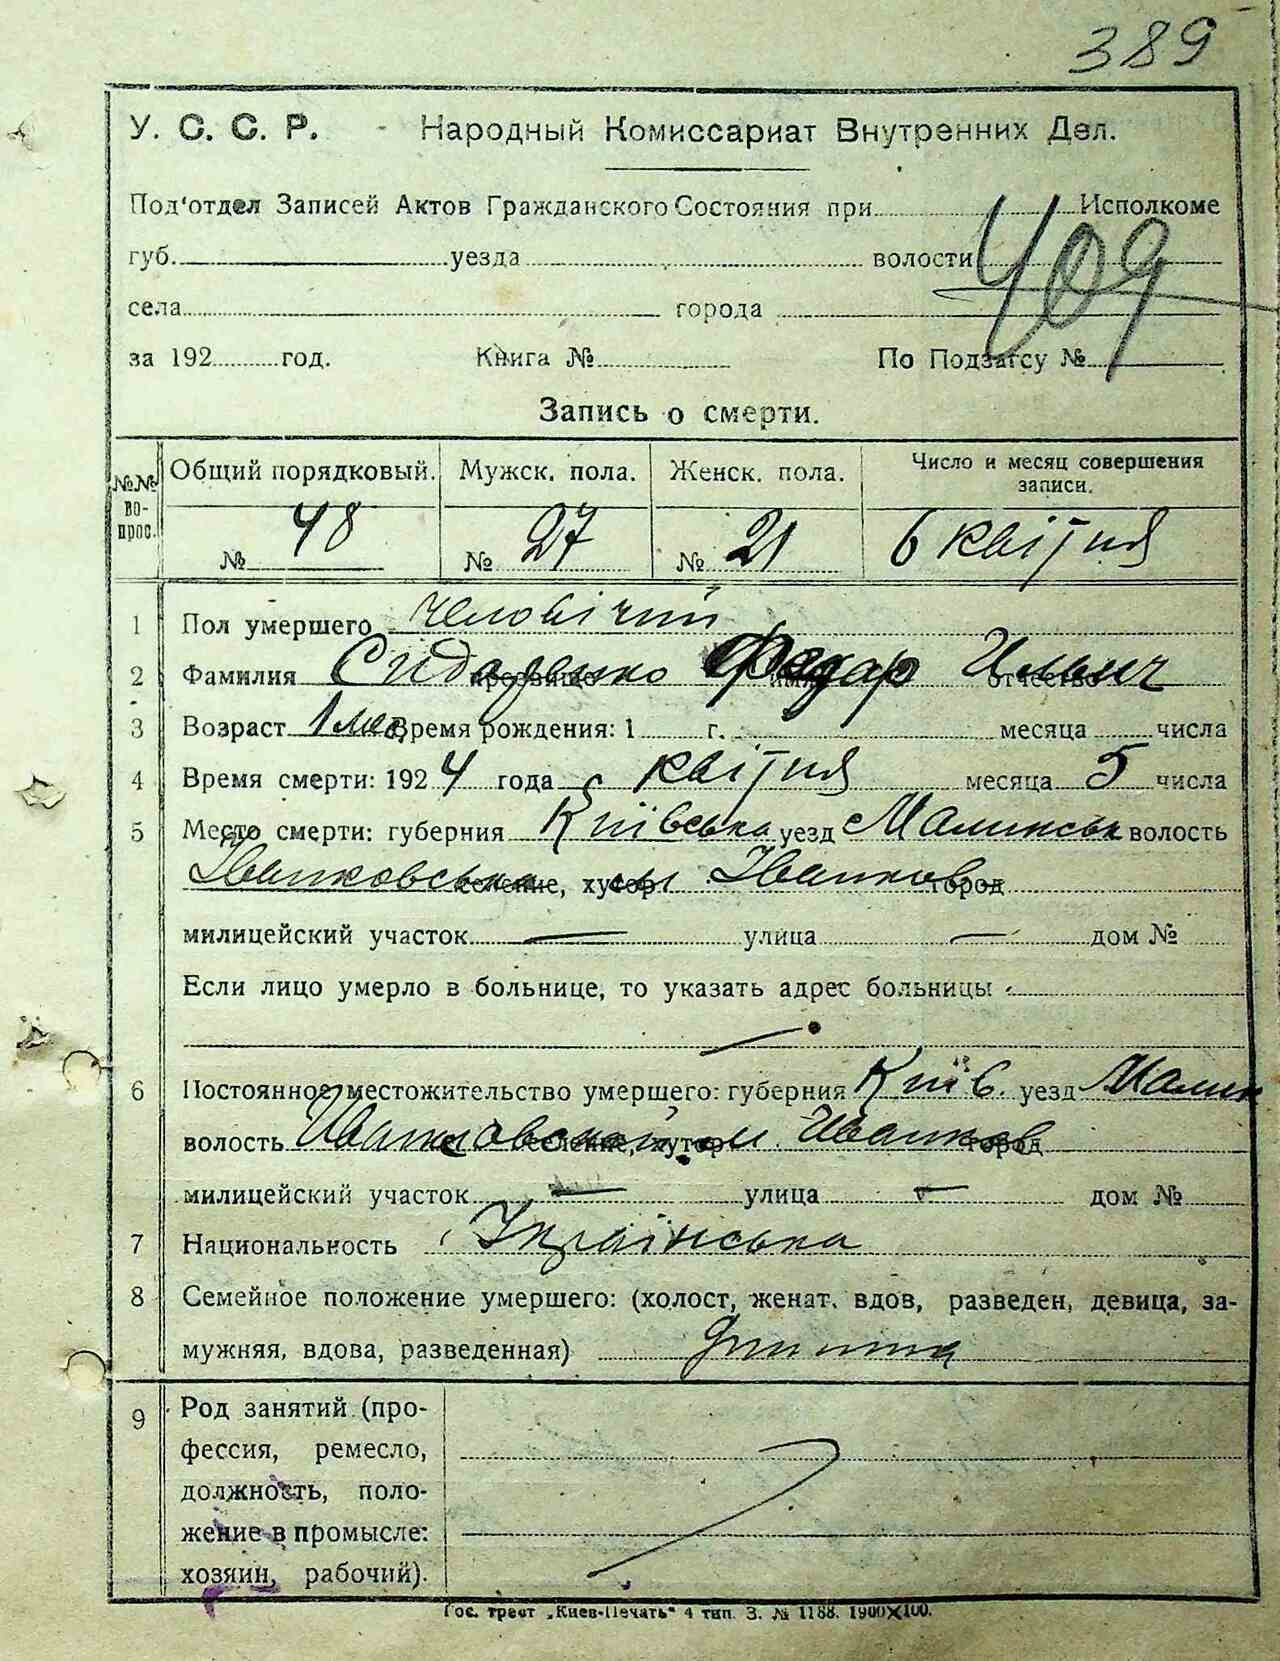 389
У. С. С. Р. - Народный Комиссариат Внутренних Дел.
Под'отдел Записей Актов Гражданского Состояния при Исполкоме
409
губ. уезда волости
села города
за 192 год. Книга № По Подзагсу №
Запись о смерти.
№№ во-прос. Общий порядковый. Мужск. пола. Женск. пола. Число и месяц совершения записи.
№ 48 № 27 № 21 6 квітня
1 Пол умершего Чоловічий
2 Фамилия Сидоренко прозвище имя Федар отчество Ильич
3 Возраст 1 мес. Время рождения: 1 г. месяца числа
4 Время смерти: 1924 года квітня месяца 5 числа
5 Место смерти: губерния Київська уезд Малинськ волость
Іванковська селение, хутор м. Іванков город
милицейский участок — улица — дом №
Если лицо умерло в больнице, то указать адрес больницы
6 Постоянное местожительство умершего: губерния Київ. уезд Малин
волость селение, хутор м. Иванков город
милицейский участок — улица — дом №
7 Национальность Українська
8 Семейное положение умершего: (холост, женат. вдов, разведен, девица, за-
мужняя, вдова, разведенная) дитина
9 Род занятий (про-
фессия, ремесло,
должность, поло-
жение в промысле:
хозяин, рабочий).
Гос. трест „Киев-Печать“ 4 тип. З. № 1188. 1900×100.